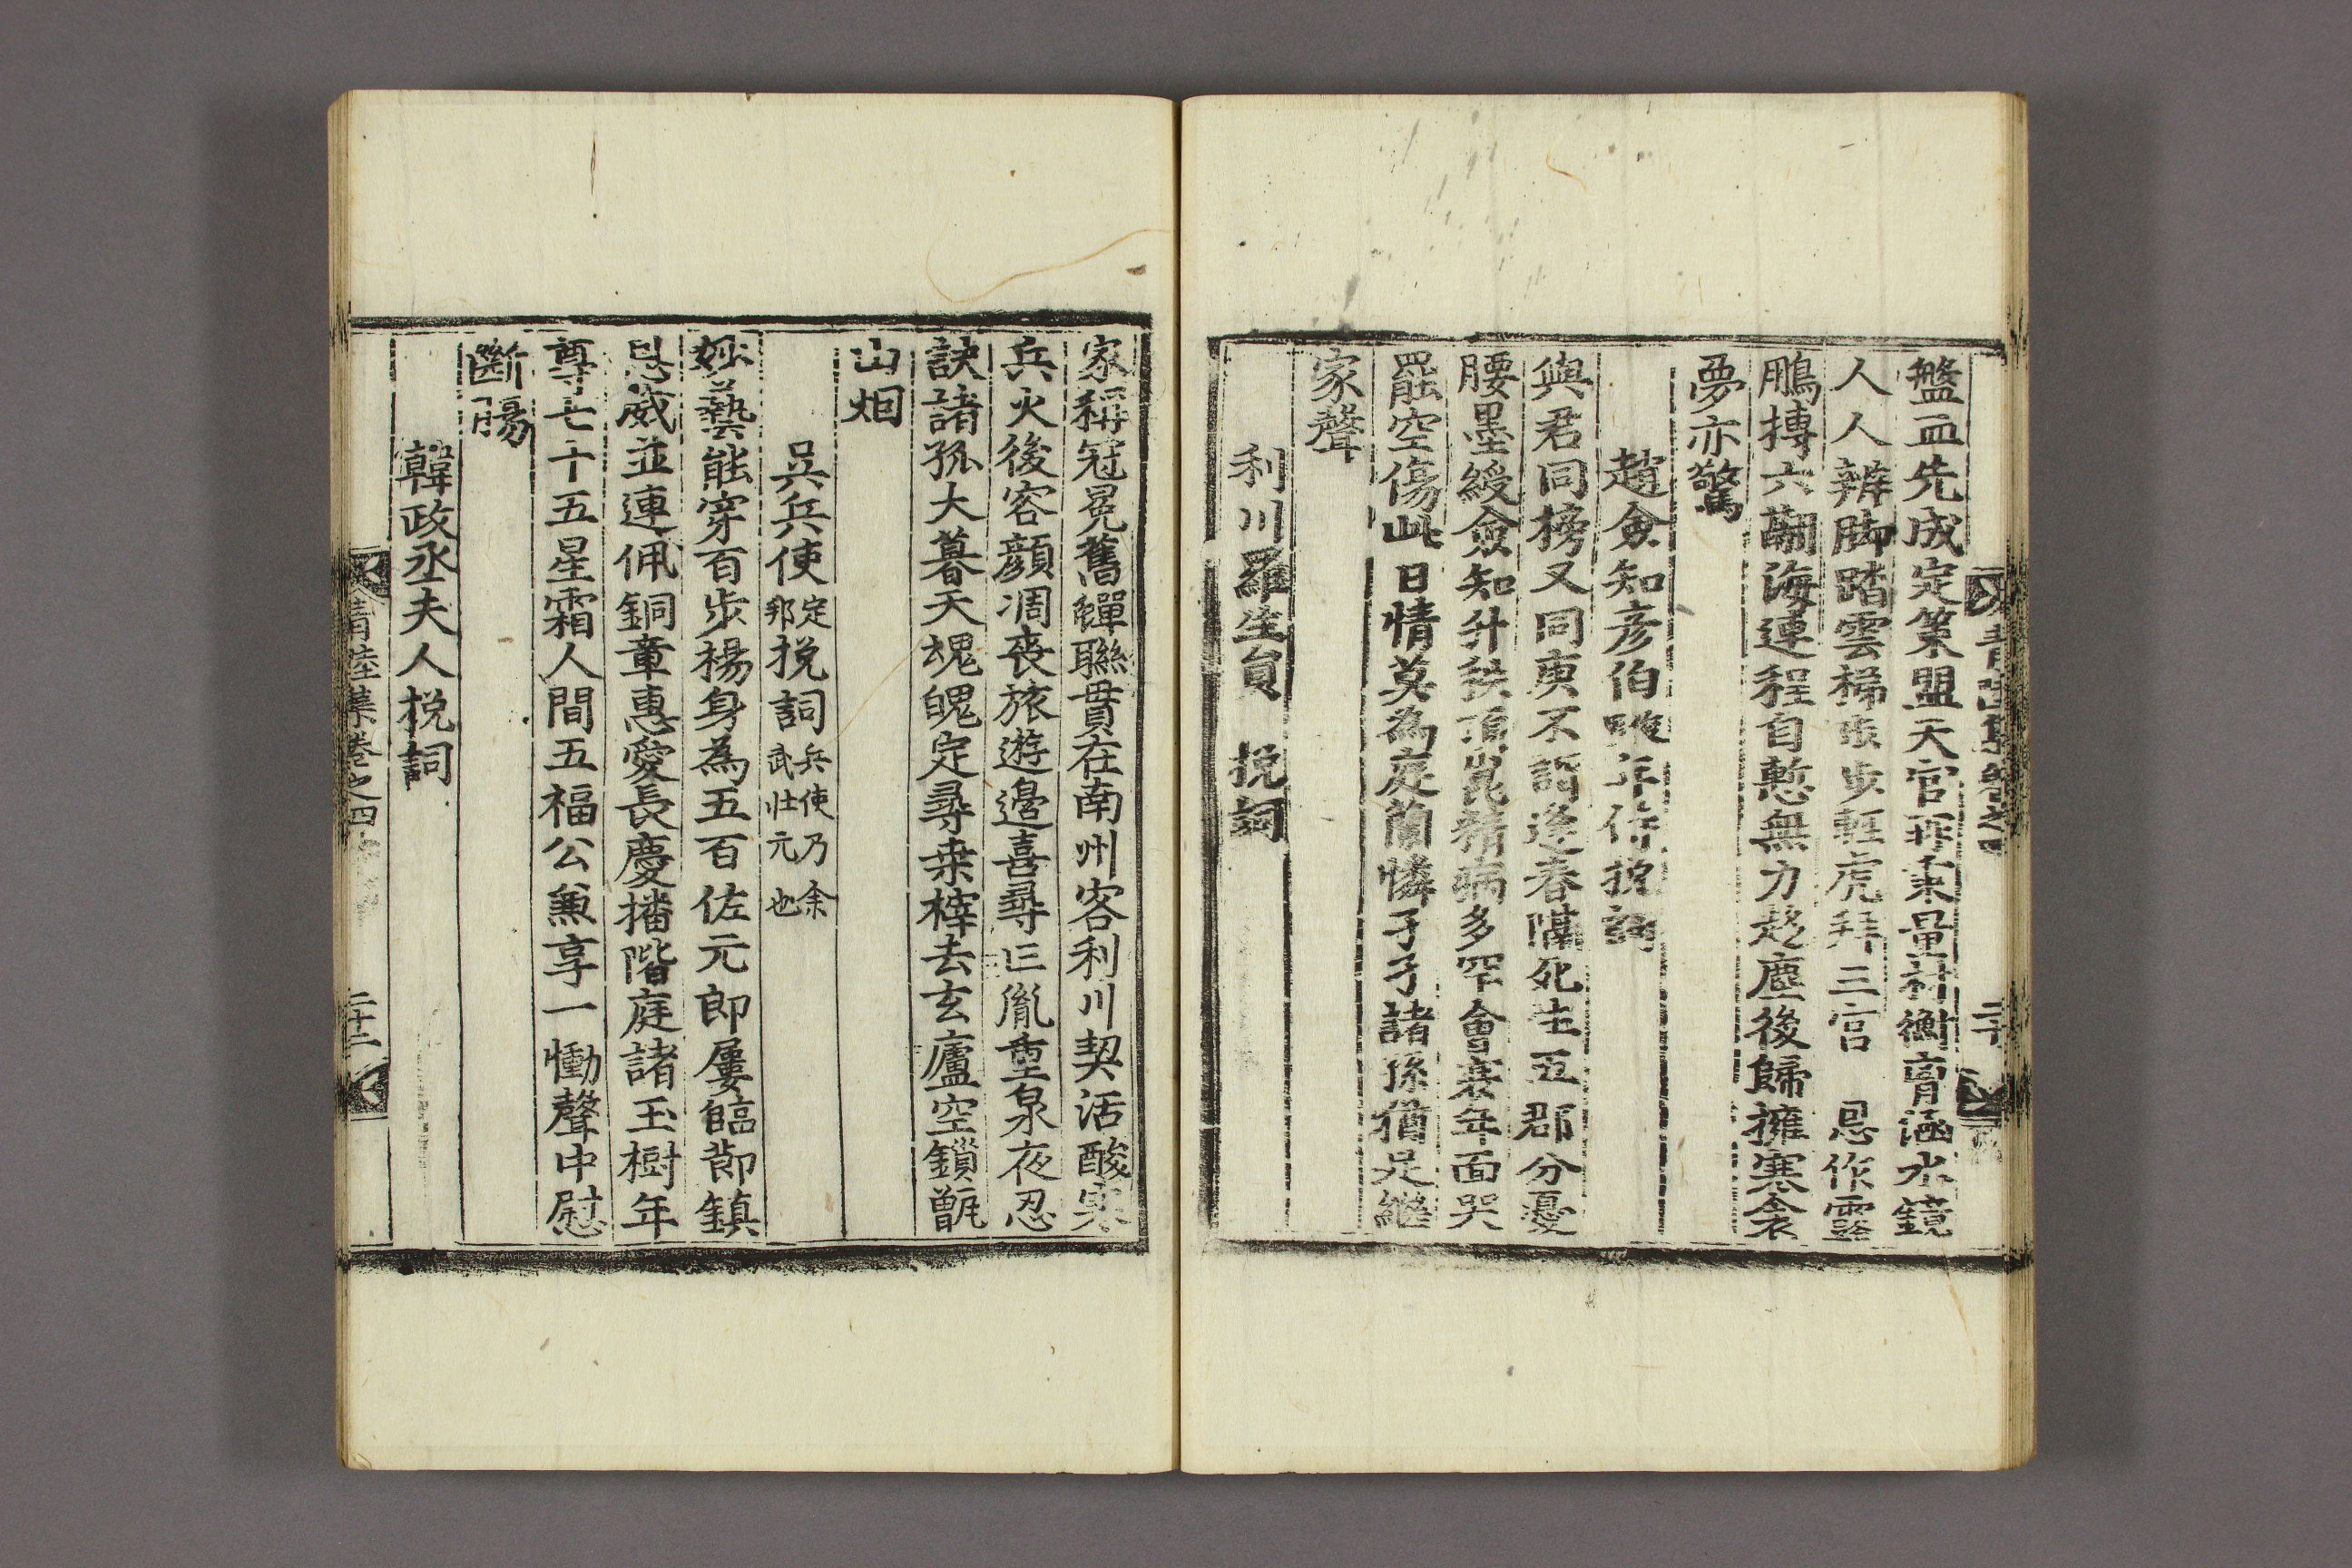 盤血先成定策盟天官兩秉量材衡胷涵水鏡
人人辨脚踏雲梯步步輕虎拜三宮 忌作靈
鵬摶六翮海運程自慙無力趍塵後歸擁寒衾
夢亦驚
趙僉知彦伯 挽詞
與君同榜又同庚不謂逢春隔死生五郡分憂
腰墨綬僉知升秩 精病多罕會衰年面哭
罷空傷此日情莫為庭蘭憐孑孑諸孫猶足繼
家聲
利川羅生員 挽詞
家稱冠冕舊蟬聯貫在南州客利川契活酸寒
兵火後容顔凋喪旅遊邊喜尋三胤重泉夜忍
訣諸孤大暮天魂魄定尋桒梓去玄廬空鎖甑
山烟
呉兵使定邦挽詞兵使乃余武壯元也
妙藝能穿百步楊身為五百佐元郎屢臨節鎮
恩威並連佩銅章惠愛長慶播階庭諸玉樹年
尊七十五星霜人間五福公兼享一慟聲中慰
斷膓
韓政丞夫人挽詞
青陸集卷之四 二十二